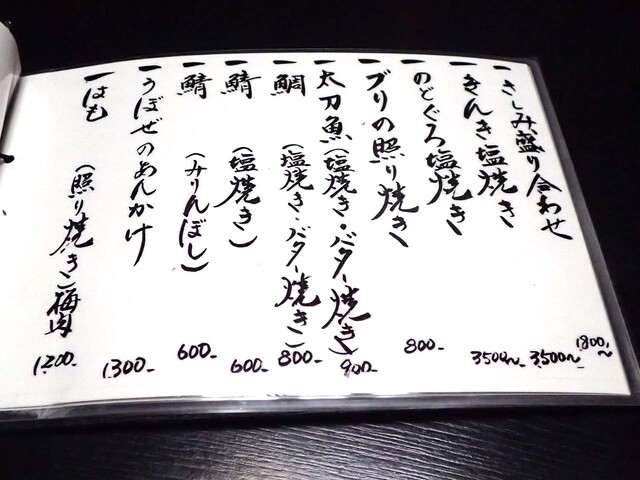 一 さしみ盛り合わせ 1,800〜
一 きんき塩焼き 3,500〜
一 のどぐろ塩焼き 3500〜
一 ブリの照り焼き 800-
一 太刀魚(塩焼き・バター焼き) 900-
一 鯛 (塩焼き・バター焼き) 800-
一 鯖 (塩焼き) 600-
一 鯖 (みりんぼし) 600-
一 うぼぜのあんかけ 1,300-
一 はも (照り焼き)梅肉 1,200-